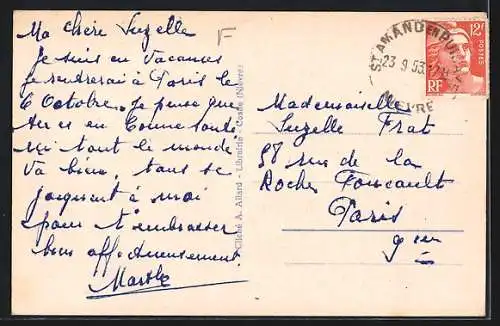 Ma chère Suzelle
F
Je suis en Vacances
je rendrerai à Paris le
6 Octobre. Je pense que
tu es en bonne santé
ici tout le monde
va bien, tous se
joignent à moi
pour t'embrasser
bien affectueusement.
Marthe
Cliché A. Allard - Librairie - Cosne (Nièvre)
ST AMAND EN PUISAYE
23 9 53
NIEVRE
12F
POSTES
RF
Mademoiselle
Suzelle Frat
58 rue de la
Roche Foucault
Paris
9 em